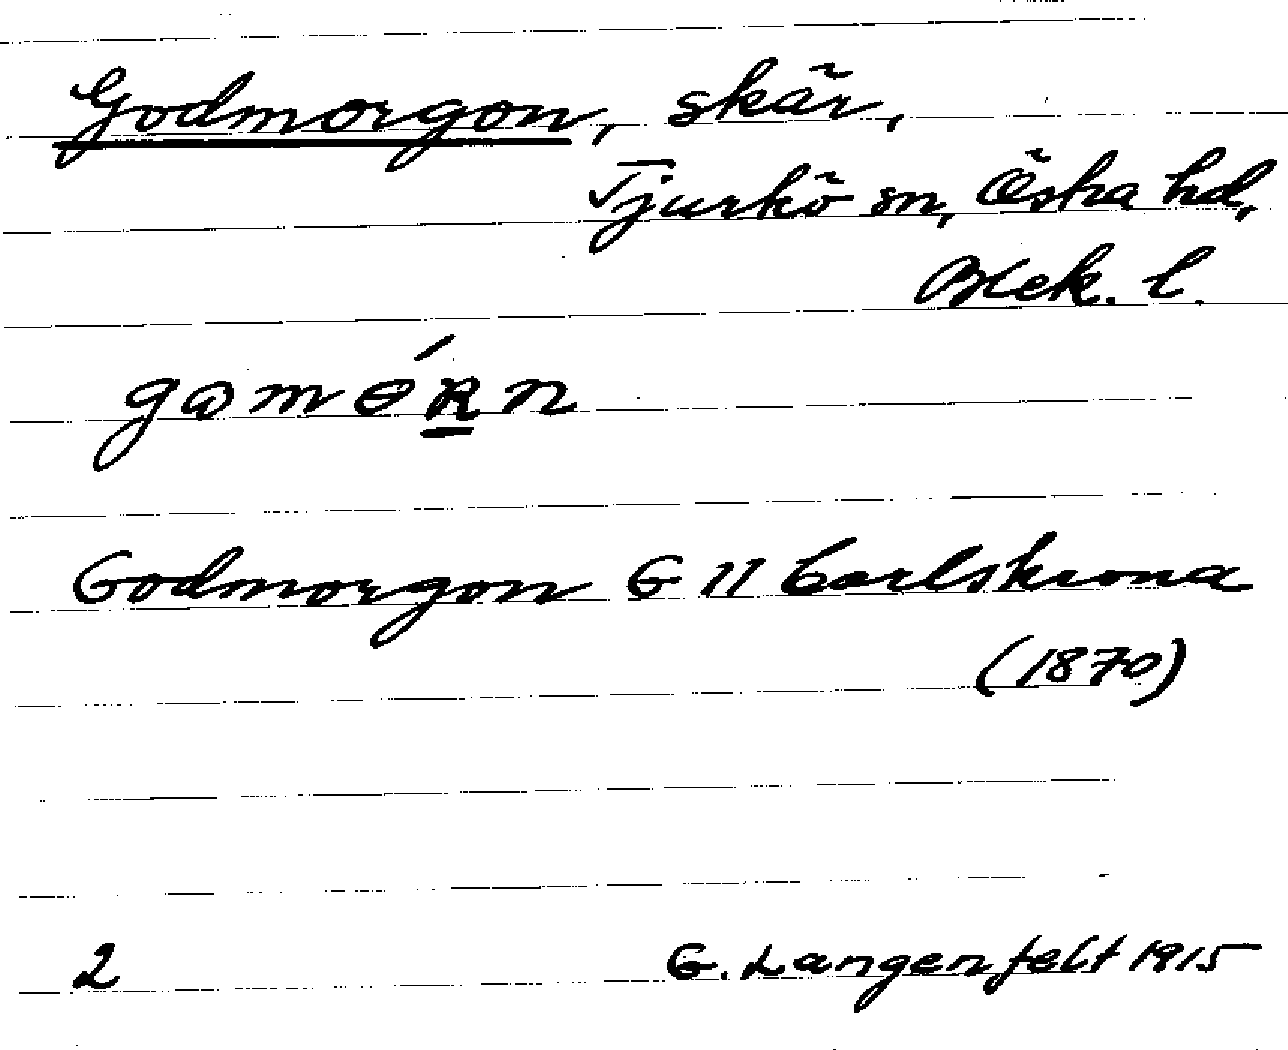 Godmorgon, skär,
Tjurkö sn, Östra hd,
Blek. l.
Godmorgon G 11 Carlskrona
(1870)
2 G. Langenfelt 1915